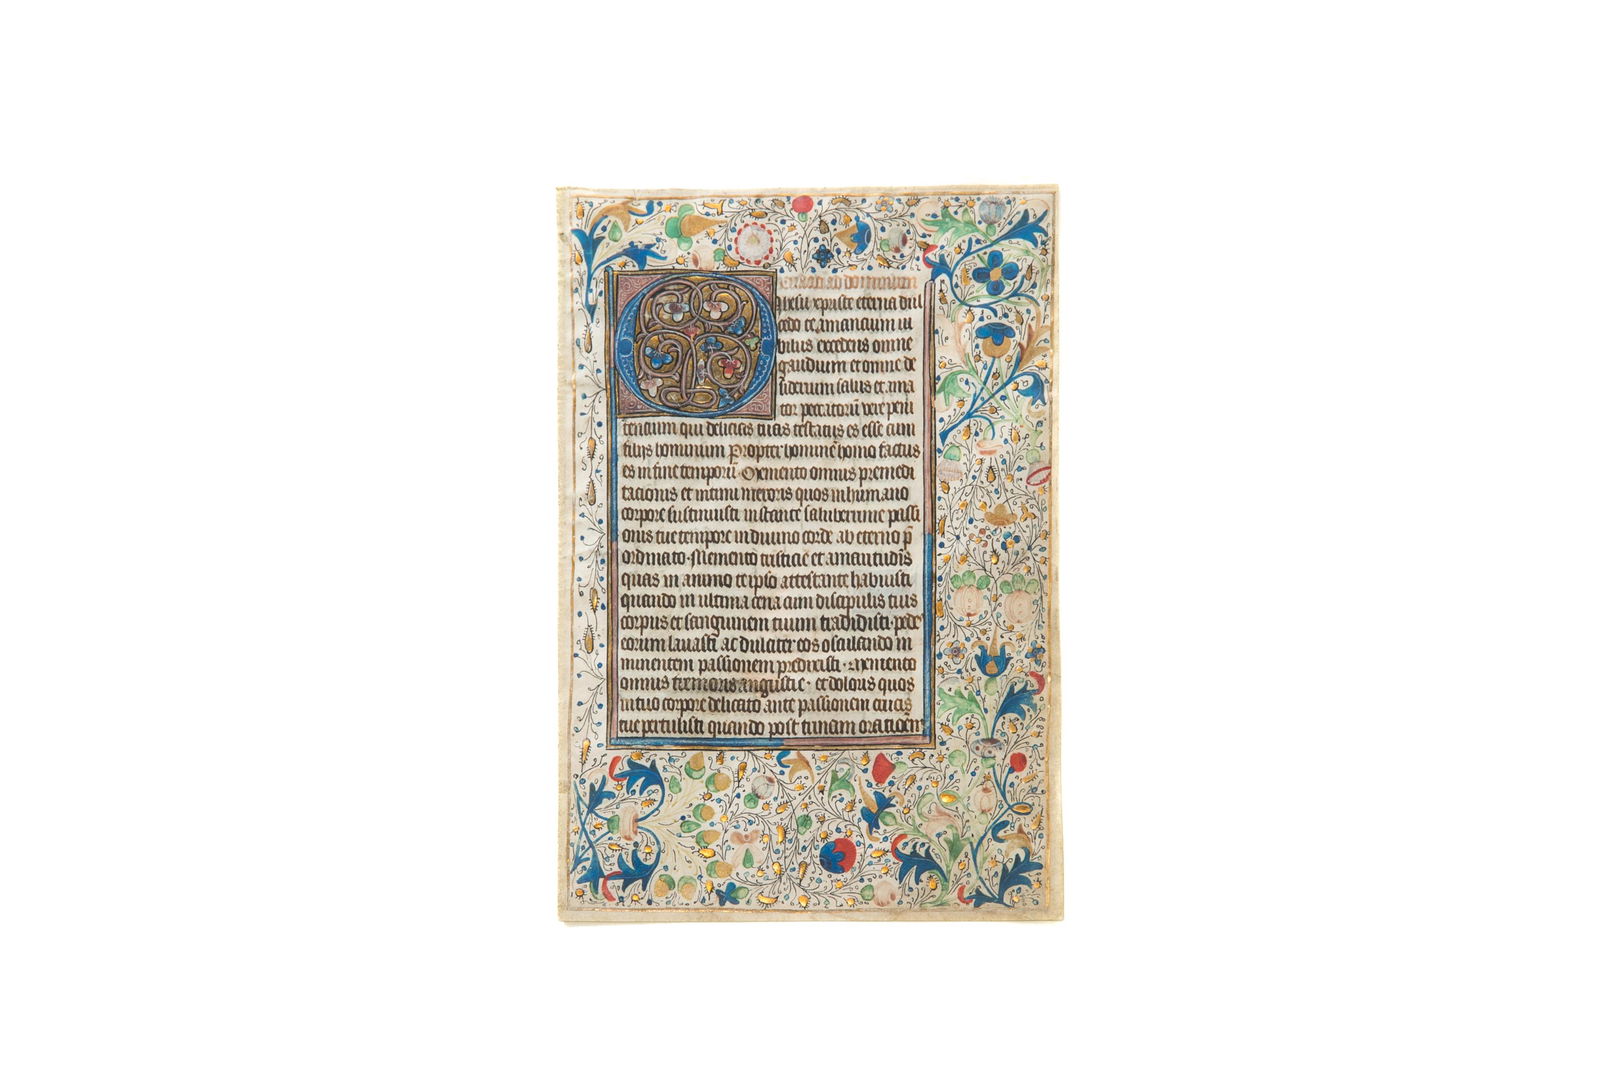 O iesu xpriste eterna dul
cedo et amancium iu
bilus excedens omne
gaudium et omne de
siderium salus et ama
tor peccatorū vere peni
tencium qui delicias tuas testatus es esse cum
filijs hominum Propter hominē homo factus
es in fine temporū Memento omnis premedi
tacionis et intimi meroris quos in humano
corpore sustinuisti instante saluberrime passi
onis tue tempore in diuino corde ab eterno p̄
ordinato · Memento tristicie et amaritudīs
quas in animo te ipso attestante habuisti
quando in ultima cena cum discipulis tuis
corpus et sanguinem tuum tradidisti · pede
eorum lauasti ac dulciter eos osculando in
minentem passionem predixisti · Memento
omnis tremoris angustie · et doloris quos
in tuo corpore delicato ante passionem crucis
tue pertulisti quando post trinam oratioēn